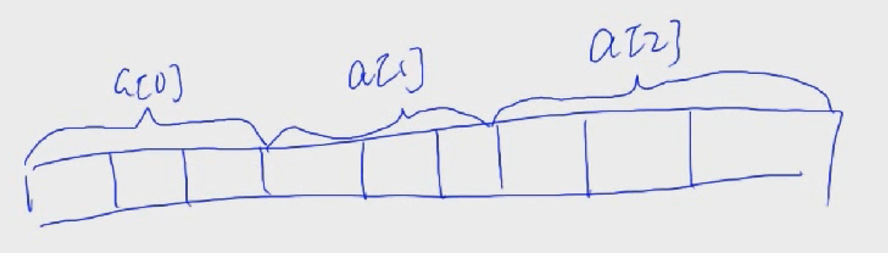 a[0] a[1] a[2]